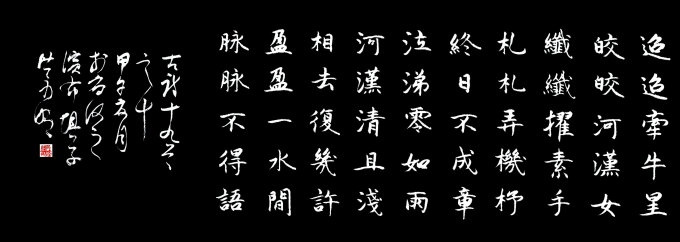 迢迢牽牛星
皎皎河漢女
纖纖擢素手
札札弄機杼
終日不成章
泣涕零如雨
河漢清且淺
相去復幾許
盈盈一水間
脉脉不得語
古詩十九首
之十
甲午夏月